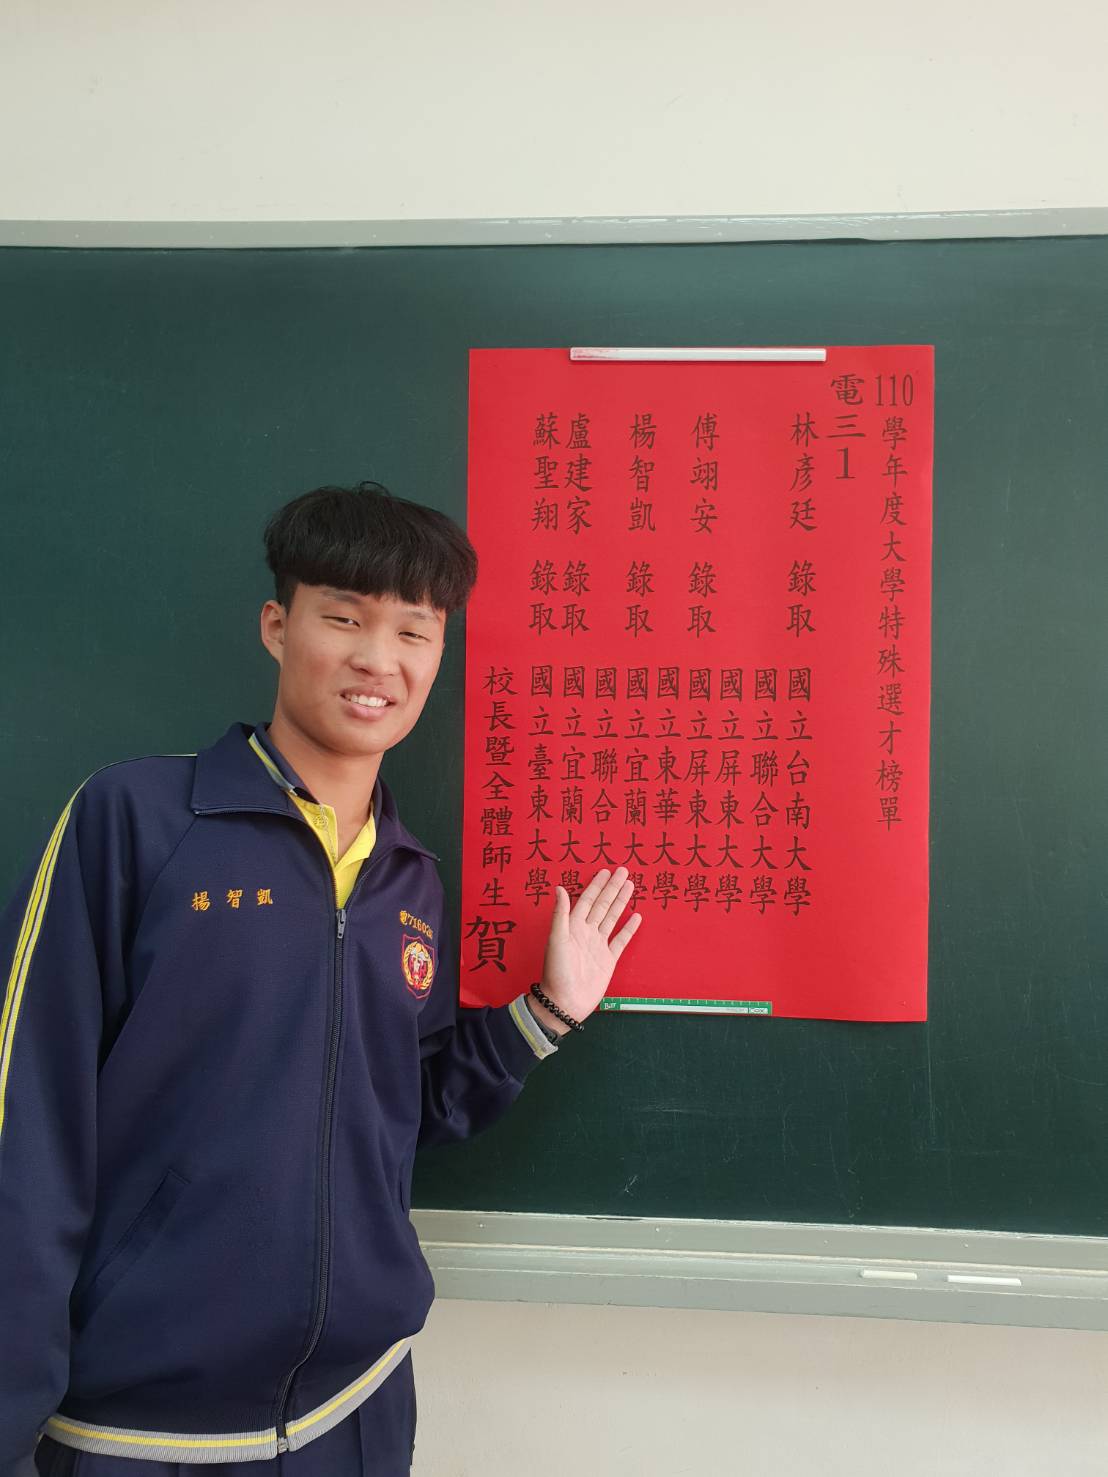 110學年度大學特殊選才榜單
電三1
林彥廷 錄取 國立台南大學
國立聯合大學
國立屏東大學
傅翊安 錄取 國立屏東大學
國立東華大學
楊智凱 錄取 國立宜蘭大學
國立聯合大
盧建家 錄取 國立宜蘭大學
蘇聖翔 錄取 國立臺東大學
校長暨全體師生賀
楊智凱